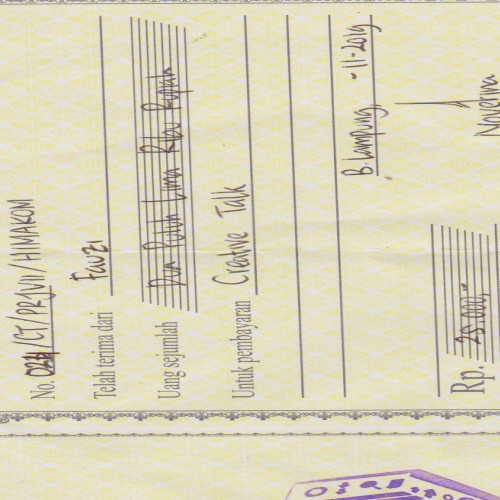 No. 023/CT/PR/VII/HIMAKOM
Telah terima dari Fauzi
Uang sejumlah Dua Puluh Lima Ribu Rupiah
Untuk pembayaran Creative Talk
B. Lampung, -11-2019
Rp. 25.000,-
Noverina